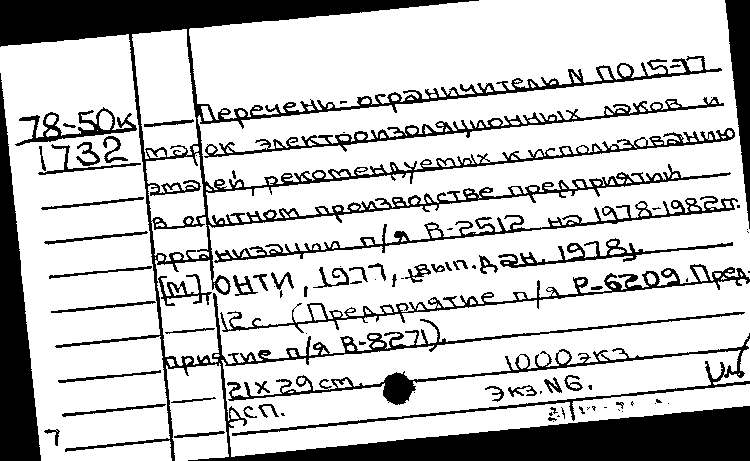 78-50к
1732
Перечень-ограничитель N ПО 15-77
марок электроизоляционных лаков и
эмалей, рекомендуемых к использованию
в опытном производстве предприятий
организации п/я В-2512 на 1978-1982гг.
[М], ОНТИ, 1977, [вып. дан. 1978].
12 с. (Предприятие п/я Р-6209. Пред-
приятие п/я В-8271).
21 х 29 см. 1000 экз.
ДСП. Экз. N6.
7